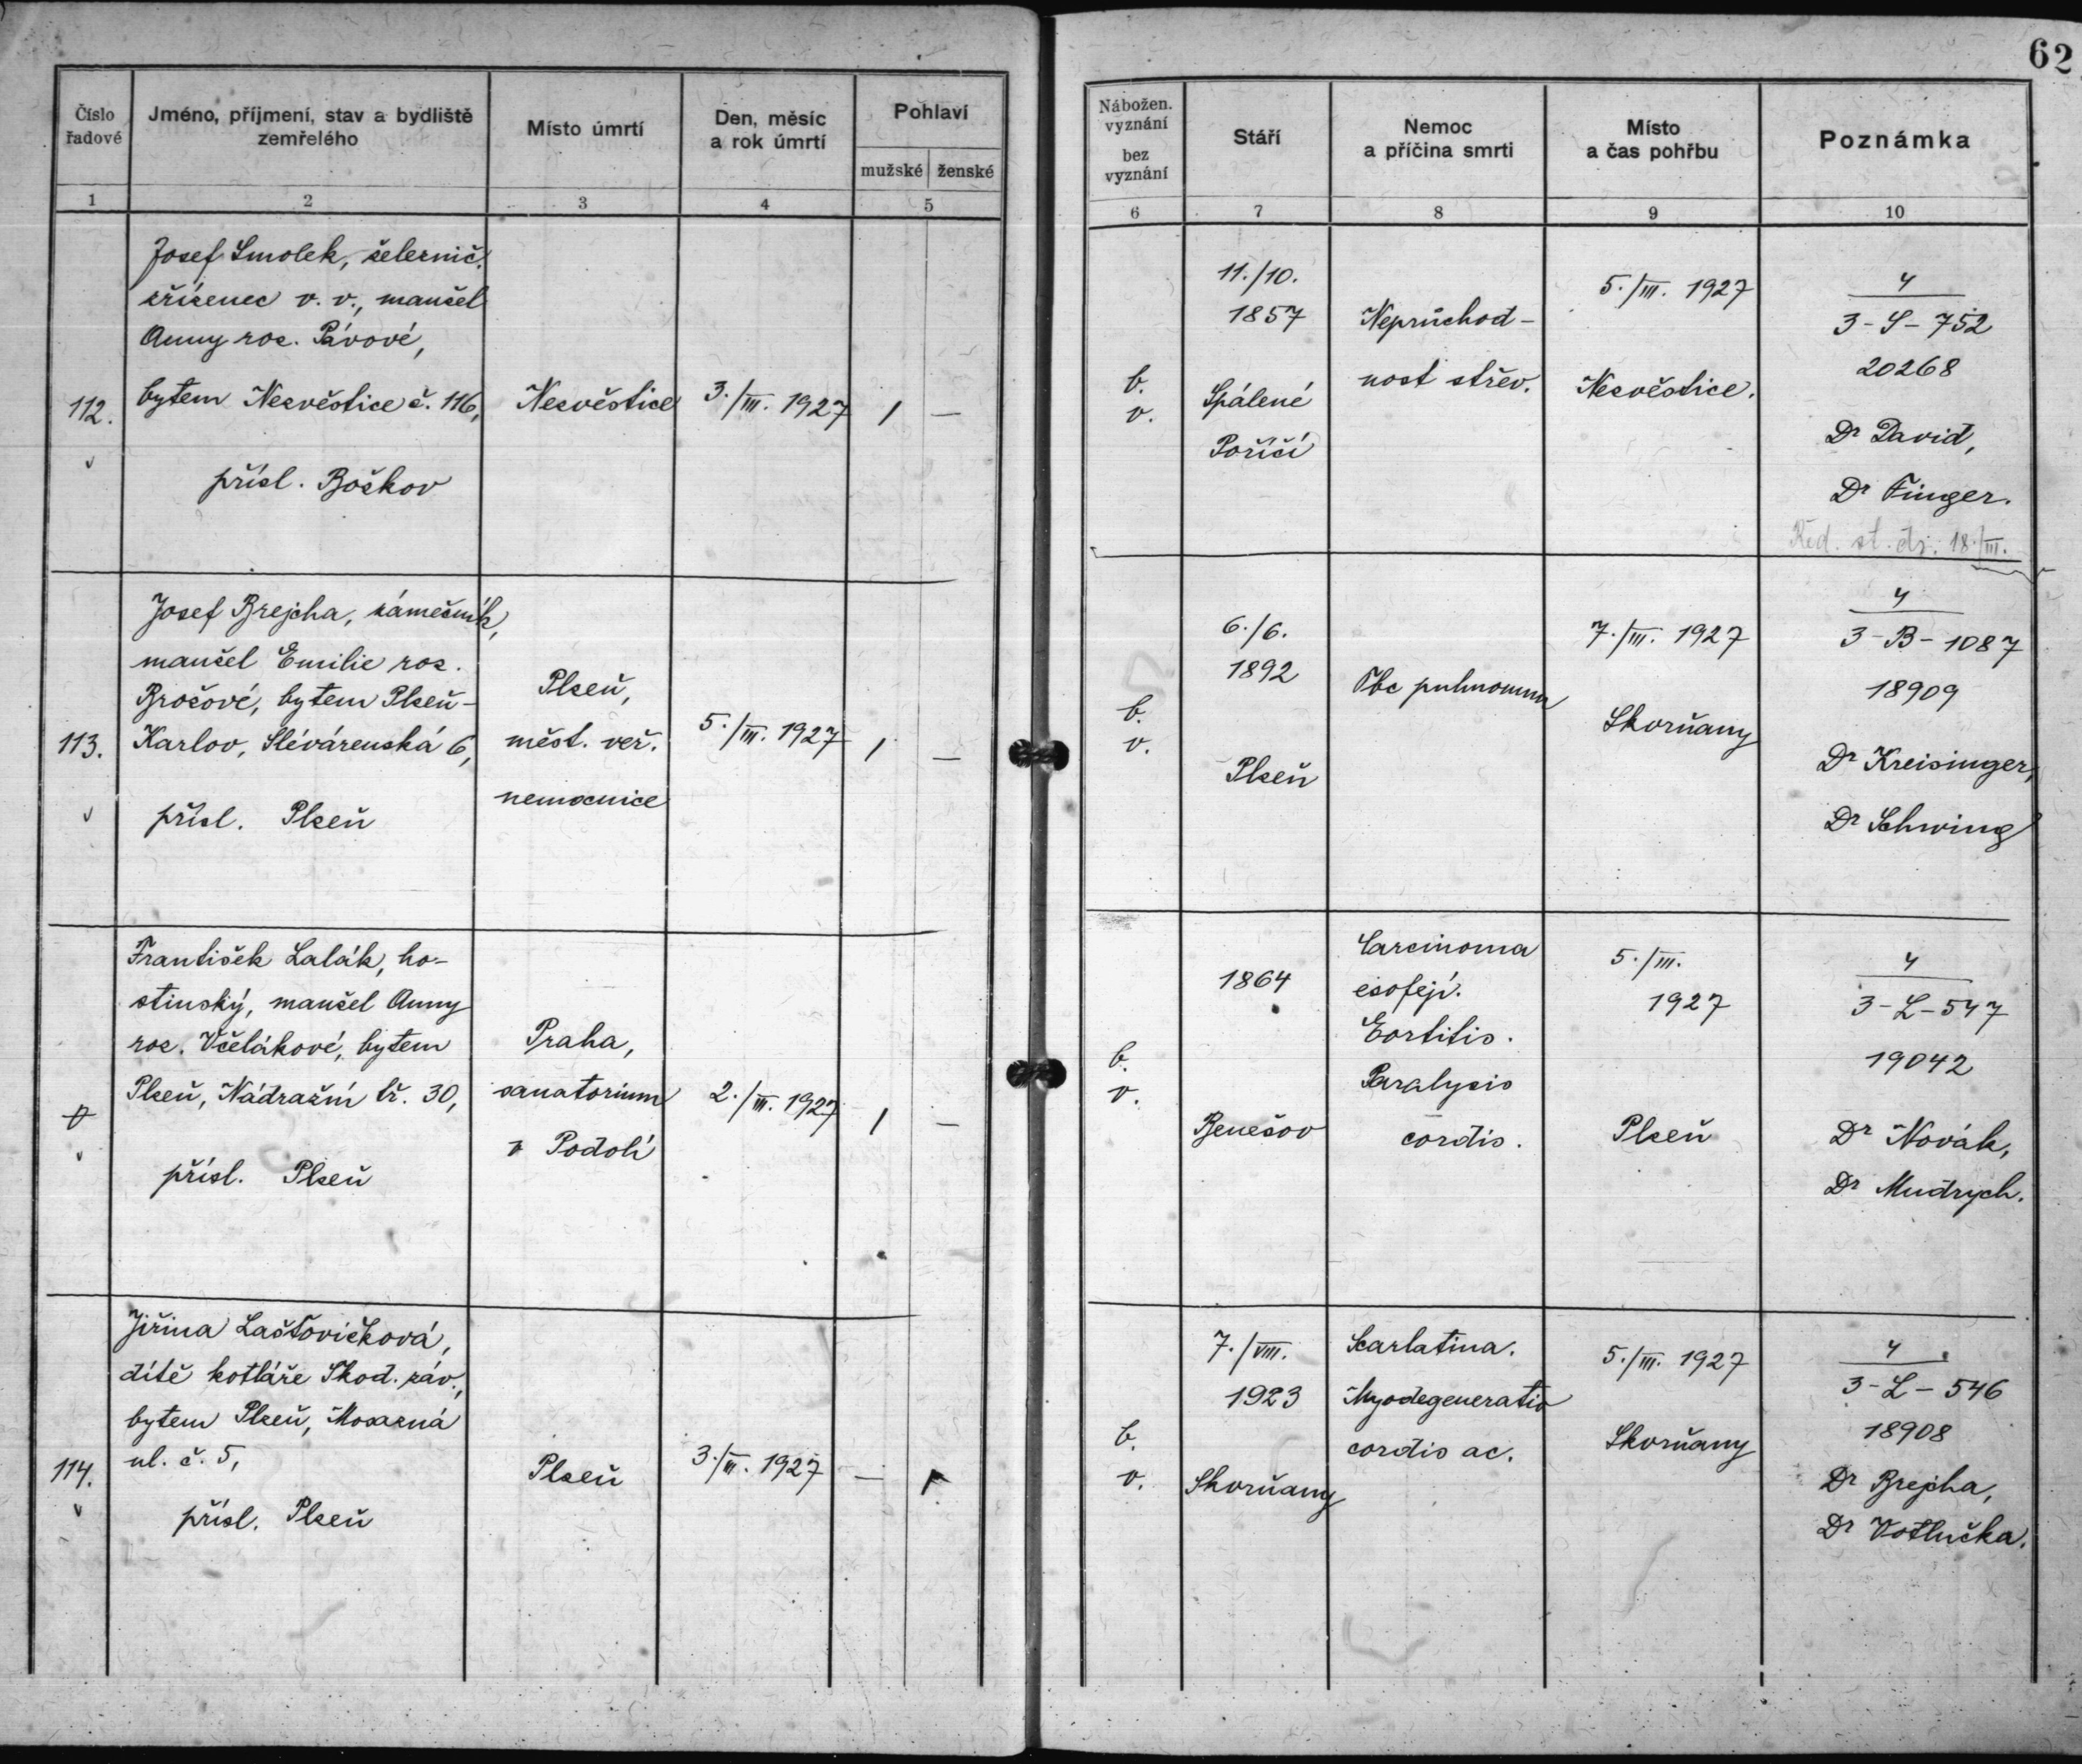 62
Číslo řadové
Jméno, příjmení, stav a bydliště zemřelého
Místo úmrtí
Den, měsíc a rok úmrtí
Pohlaví
mužské
ženské
Nábožen. vyznání
bez vyznání
Stáří
Nemoc a příčina smrti
Místo a čas pohřbu
Poznámka
1
2
3
4
5
6
7
8
9
10
112.
Josef Smolek, železnič.
zřízenec v. v., manžel
Anny roz. Pávové,
bytem Nezvěstice č. 116,
přísl. Božkov
Nezvěstice
3./III. 1927
/
—
b.
v.
11./10.
1857
Spálené
Poříčí
Neprůchod-
nost střev.
5./III. 1927
Nezvěstice.
4
3-S-752
20268
Dr David,
Dr Finger.
Řed. st. dr. 18./III.
113.
Josef Brejcha, zámečník,
manžel Emilie roz.
Brožové, bytem Plzeň-
Karlov, Slévárenská 6,
přísl. Plzeň
Plzeň,
měst. veř.
nemocnice
5./III. 1927
/
—
b.
v.
6./6.
1892
Plzeň
Tbc pulmonum
7./III. 1927
Skvrňany
4
3-B-1087
18909
Dr Kreisinger,
Dr Schwing
František Lalák, ho-
stinský, manžel Anny
roz. Včelákové, bytem
Plzeň, Nádražní tř. 30,
přísl. Plzeň
Praha,
sanatorium
v Podolí
2./III. 1927
/
—
b.
v.
1864
Benešov
Carcinoma
esofeji.
Eortitis.
Paralysis
cordis.
5./III.
1927
Plzeň
4
3-L-547
19042
Dr Novák,
Dr Mudrych.
114.
Jiřina Lašťovičková,
dítě kotláře Škod. záv.,
bytem Plzeň, Mosazná
ul. č. 5,
přísl. Plzeň
Plzeň
3./III. 1927
—
/
b.
v.
7./VIII.
1923
Skvrňany
Scarlatina.
Myodegeneratio
cordis ac.
5./III. 1927
Skvrňany
4
3-L-546
18908
Dr Brejcha,
Dr Votlučka.